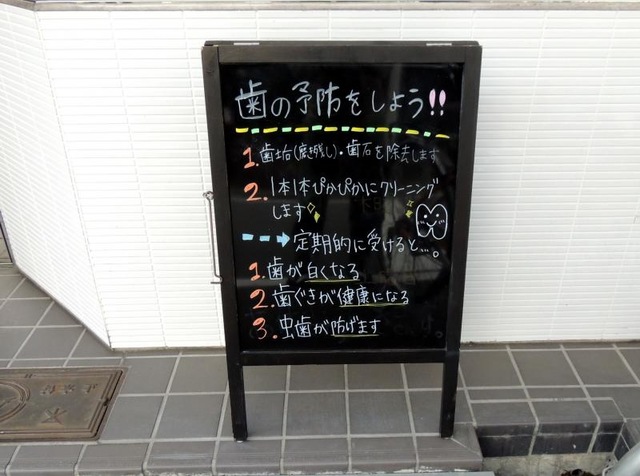 歯の予防をしよう!!
1.歯垢(磨き残し)・歯石を除去します
2.1本1本ぴかぴかにクリーニング
します
定期的に受けると…。
1.歯が白くなる
2.歯ぐきが健康になる
3.虫歯が防げます